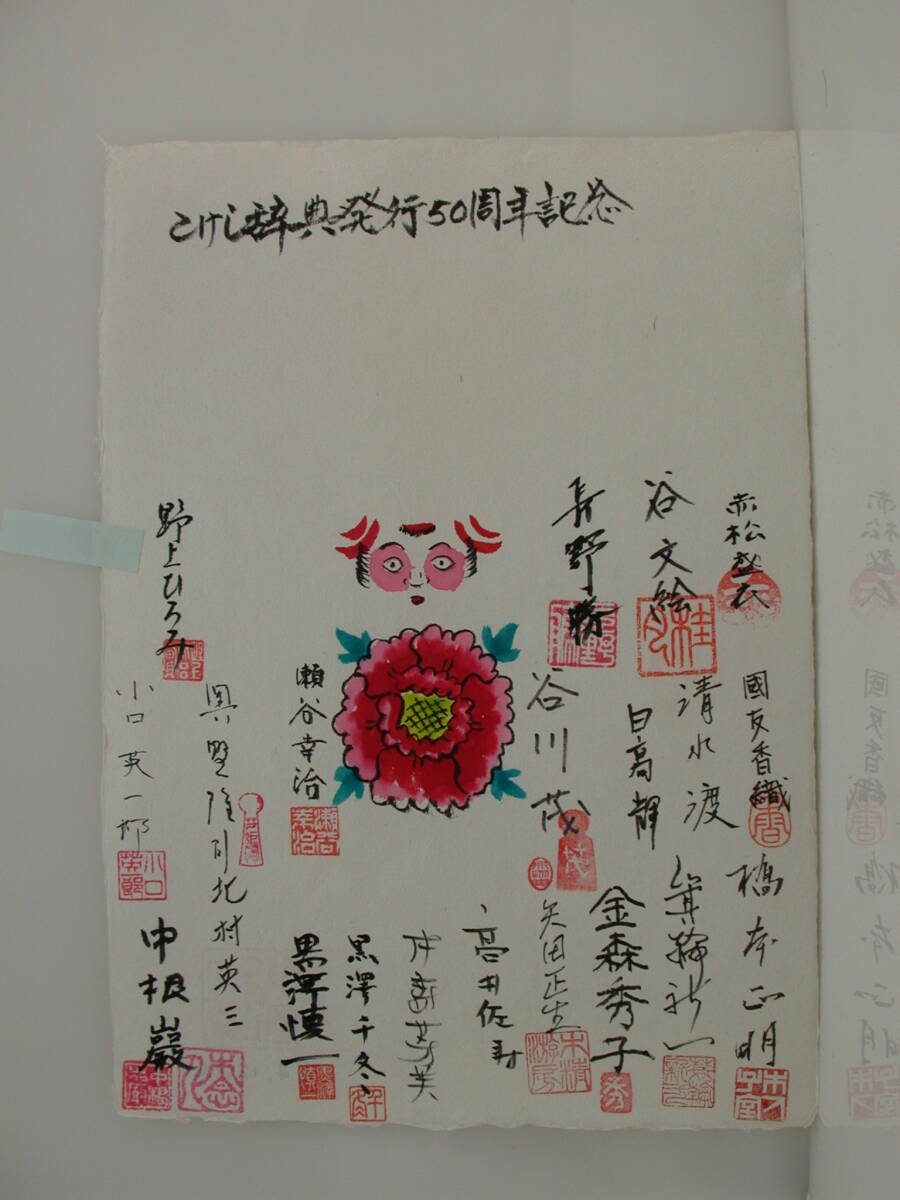 こけし辞典発行50周年記念
赤松盤衣
谷文絵
長野
國友香織
清水渡
日高靜
谷川茂
瀬谷幸治
野上ひろみ
奥野隆
小口英一郎
橋本正明
箕輪新一
金森秀子
矢田正生
高井佐寿
黒澤千冬
黒澤慎一
北村英三
中根巖